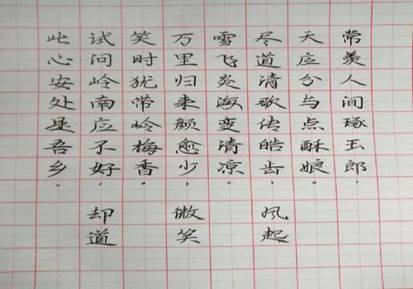 常羡人间琢玉郎，
天应分与点酥娘。
尽道清歌传皓齿，风起
雪飞炎海变清凉。
万里归来颜愈少，微笑
笑时犹带岭梅香。
试问岭南应不好，却道
此心安处是吾乡。